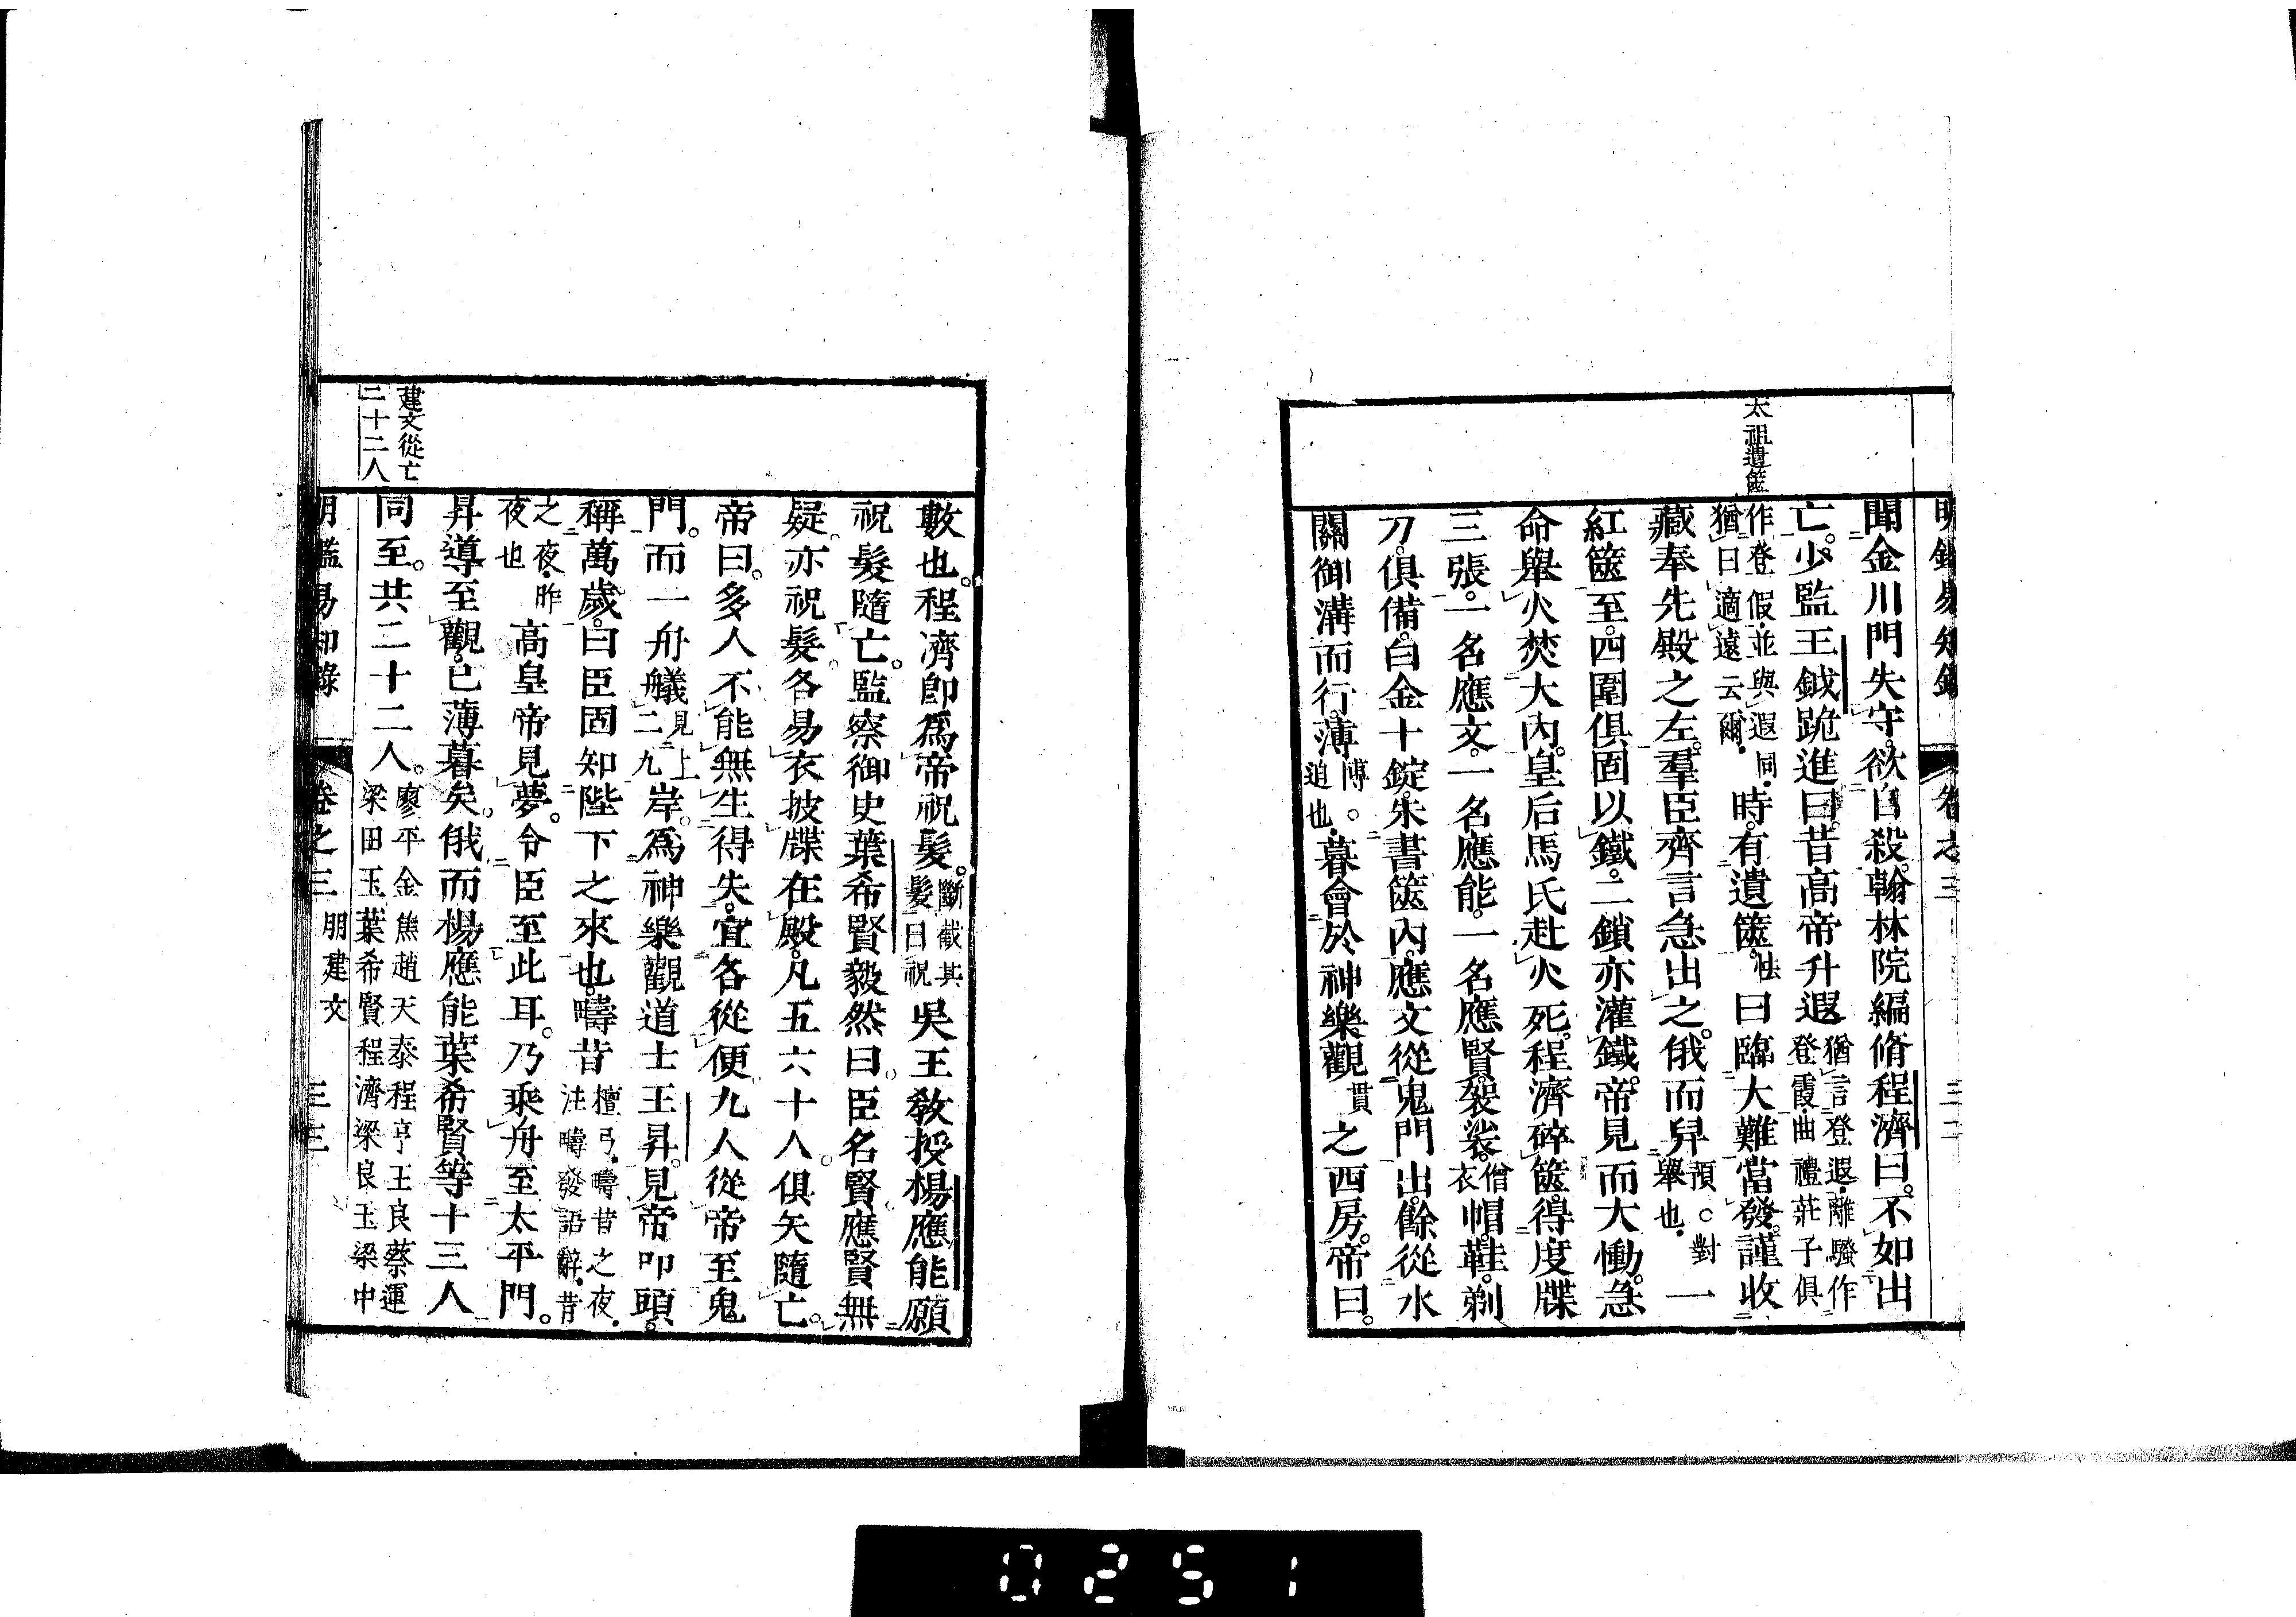 明鑑易知錄 卷之三 三二
太祖遺篋
聞金川門失守。欲自殺。翰林院編脩程濟曰。不如出
亡。少監王鉞跪進曰。昔高帝升遐 猶言登遐。離騷作登霞。曲禮莊子俱
作登假。並與遐同。猶曰適遠云爾。時。有遺篋。怯 曰臨大難當發。謹收
藏奉先殿之左。羣臣齊言急出之。俄而舁 預。對舉也。 一
紅篋至。四圍俱固以鐵。二鎖亦灌鐵。帝見而大慟。急
命舉火焚大內。皇后馬氏赴火死。程濟碎篋。得度牒
三張。一名應文。一名應能。一名應賢。袈裟。僧衣 帽。鞋。剃
刀。俱備。白金十錠。朱書篋內。應文從鬼門出。餘從水
關御溝而行。薄 博。迫也。 暮會於神樂觀 貫 之西房。帝曰。
數也。程濟卽爲帝祝髮。斷截其髮曰祝 吳王敎授楊應能願
祝髮隨亡。監察御史葉希賢毅然曰。臣名賢。應賢無
疑。亦祝髮。各易衣披牒。在殿。凡五六十人。俱矢隨亡。
帝曰。多人不能無生得失。宜各從便。九人從帝至鬼
門。而一舟艤 見上二九 岸。爲神樂觀道士王昇。見帝叩頭。
稱萬歲。曰臣固知陛下之來也。疇昔 檀弓。疇昔之夜。注疇發語辭。昔
之夜。昨夜也 高皇帝見夢。令臣至此耳。乃乘舟至太平門。
昇導至觀。已薄暮矣。俄而楊應能葉希賢等十三人
建文從亡
二十二人
同至。共二十二人。廖平金焦趙天泰程亨王良蔡運梁田玉葉希賢程濟梁良玉梁中
明鑑易知錄 卷之三 明建文 三三
0251